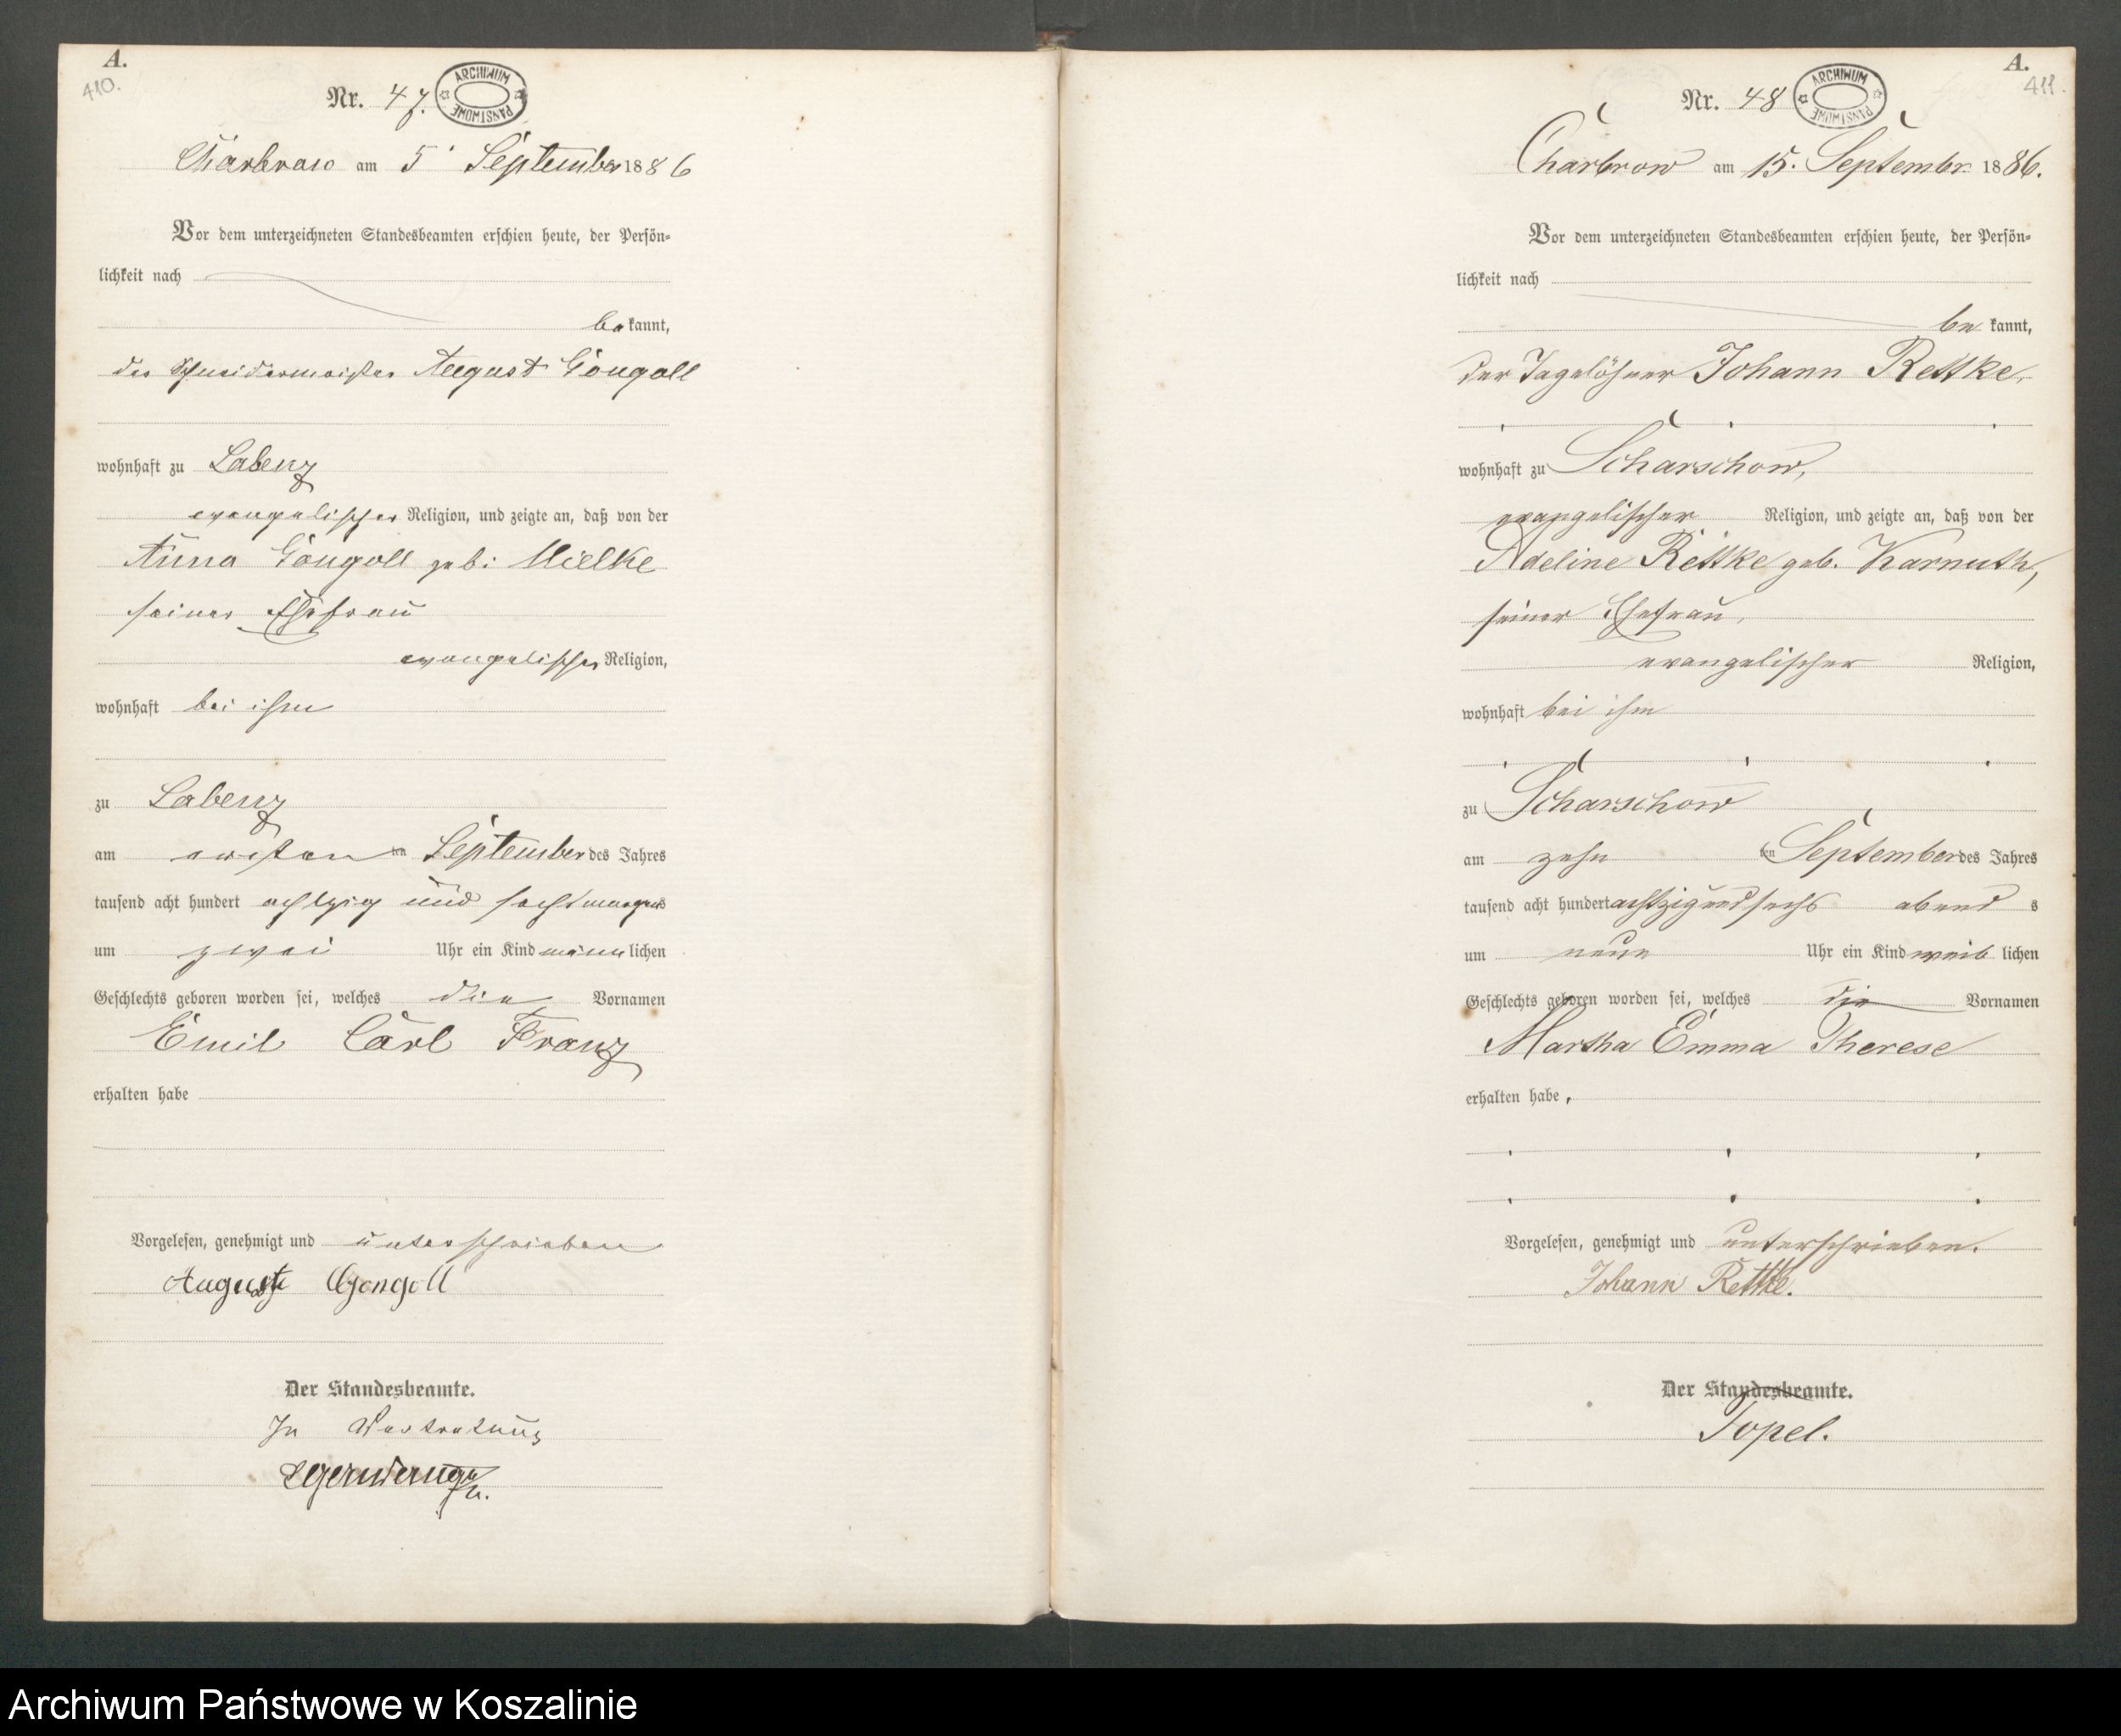 A.
410.
Nr. 47.
ARCHIWUM PAŃSTWOWE
Charbrow am 5. September 1886
Vor dem unterzeichneten Standesbeamten erschien heute, der Persön-
lichkeit nach
bekannt,
der Schneidermeister August Gongoll
wohnhaft zu Labenz
evangelischer Religion, und zeigte an, daß von der
Anna Gongoll geb: Mielke
seiner Ehefrau
evangelischer Religion,
wohnhaft bei ihm
zu Labenz
am ersten ten September des Jahres
tausend acht hundert achtzig und sechs morgens
um zwei Uhr ein Kind männlichen
Geschlechts geboren worden sei, welches die Vornamen
Emil Carl Franz
erhalten habe
Vorgelesen, genehmigt und unterschrieben
August Gongoll
Der Standesbeamte.
In Vertretung
A.
411.
Nr. 48
ARCHIWUM PAŃSTWOWE
Charbrow am 15. Septembr. 1886.
Vor dem unterzeichneten Standesbeamten erschien heute, der Persön-
lichkeit nach
bekannt,
der Tagelöhner Johann Rettke,
wohnhaft zu Scharschow,
evangelischer Religion, und zeigte an, daß von der
Adeline Rettke geb. Karnuth,
seiner Ehefrau,
evangelischer Religion,
wohnhaft bei ihm
zu Scharschow
am zehn ten September des Jahres
tausend acht hundert achtzig und sechs abends
um neun Uhr ein Kind weiblichen
Geschlechts geboren worden sei, welches die Vornamen
Martha Emma Therese
erhalten habe,
Vorgelesen, genehmigt und unterschrieben.
Johann Rettke.
Der Standesbeamte.
Topel.
Archiwum Państwowe w Koszalinie